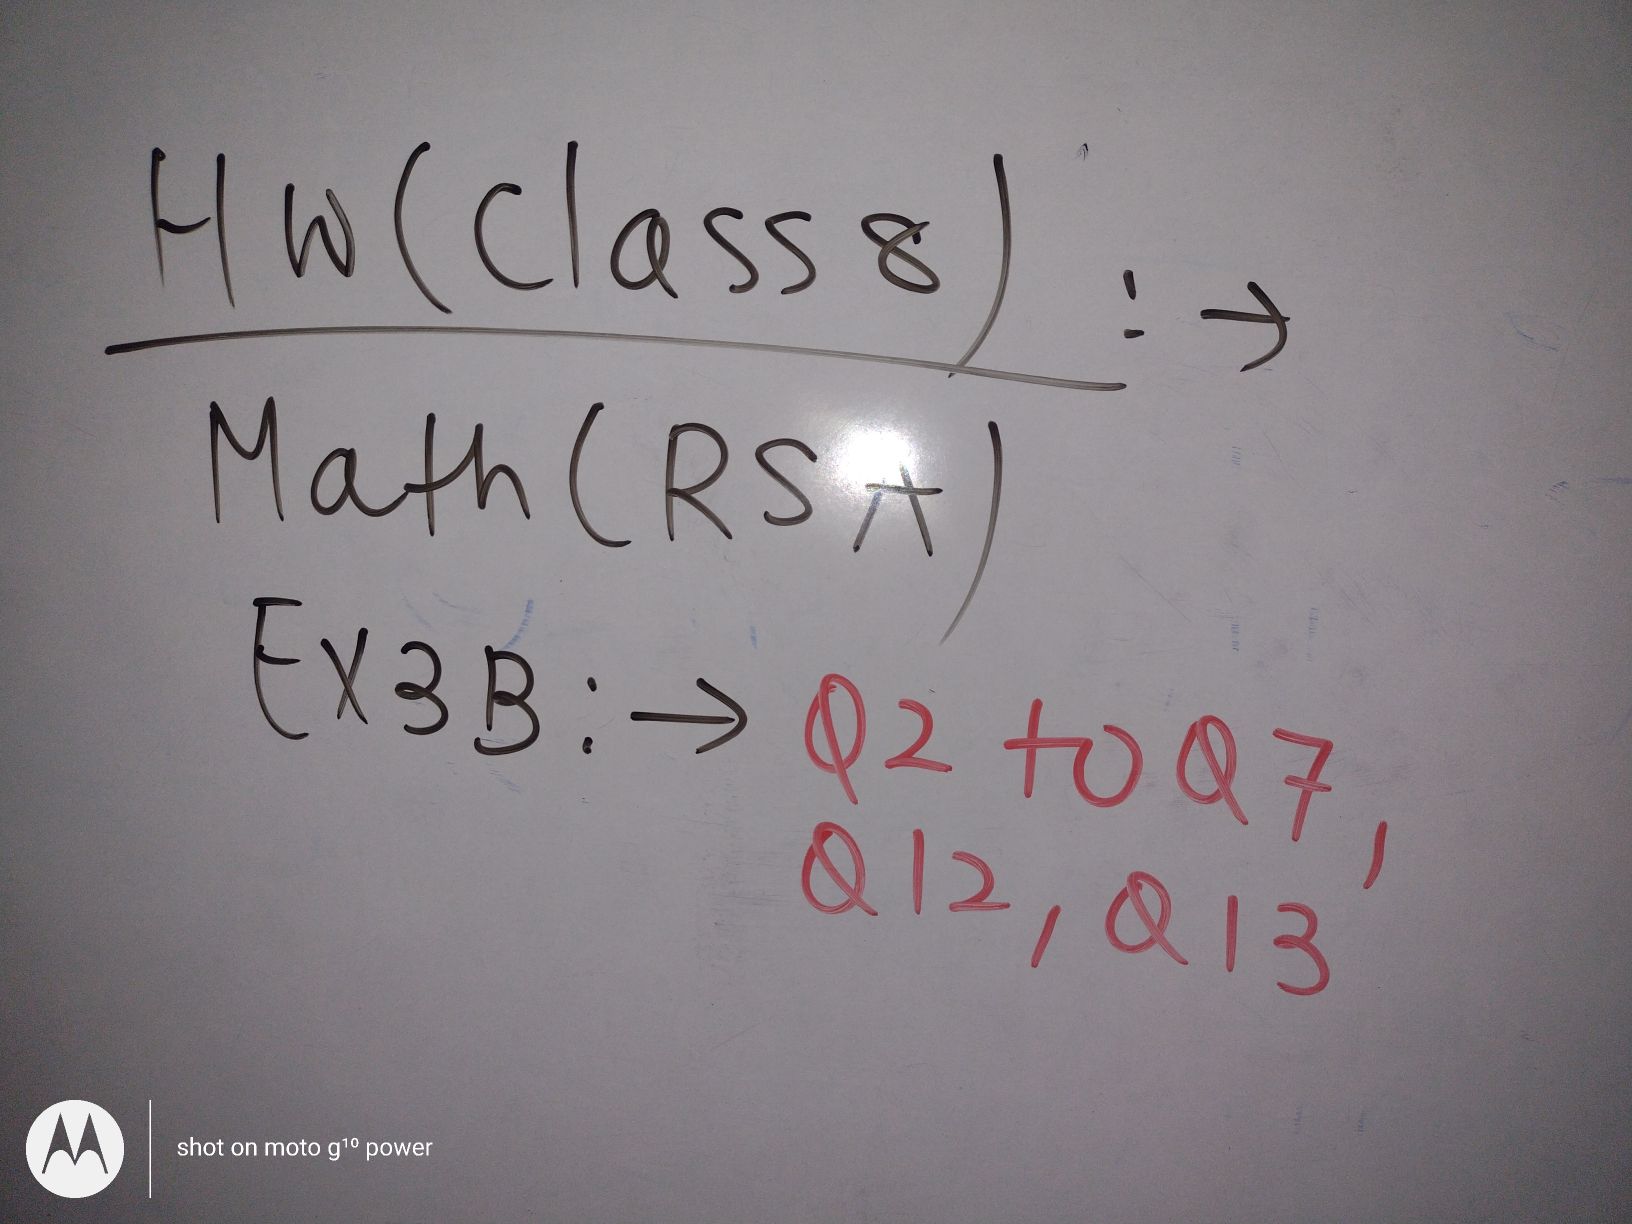 HW(Class 8) :→
Math(RSA)
Ex3B:→ Q2 to Q7,
Q12, Q13
shot on moto g¹⁰ power